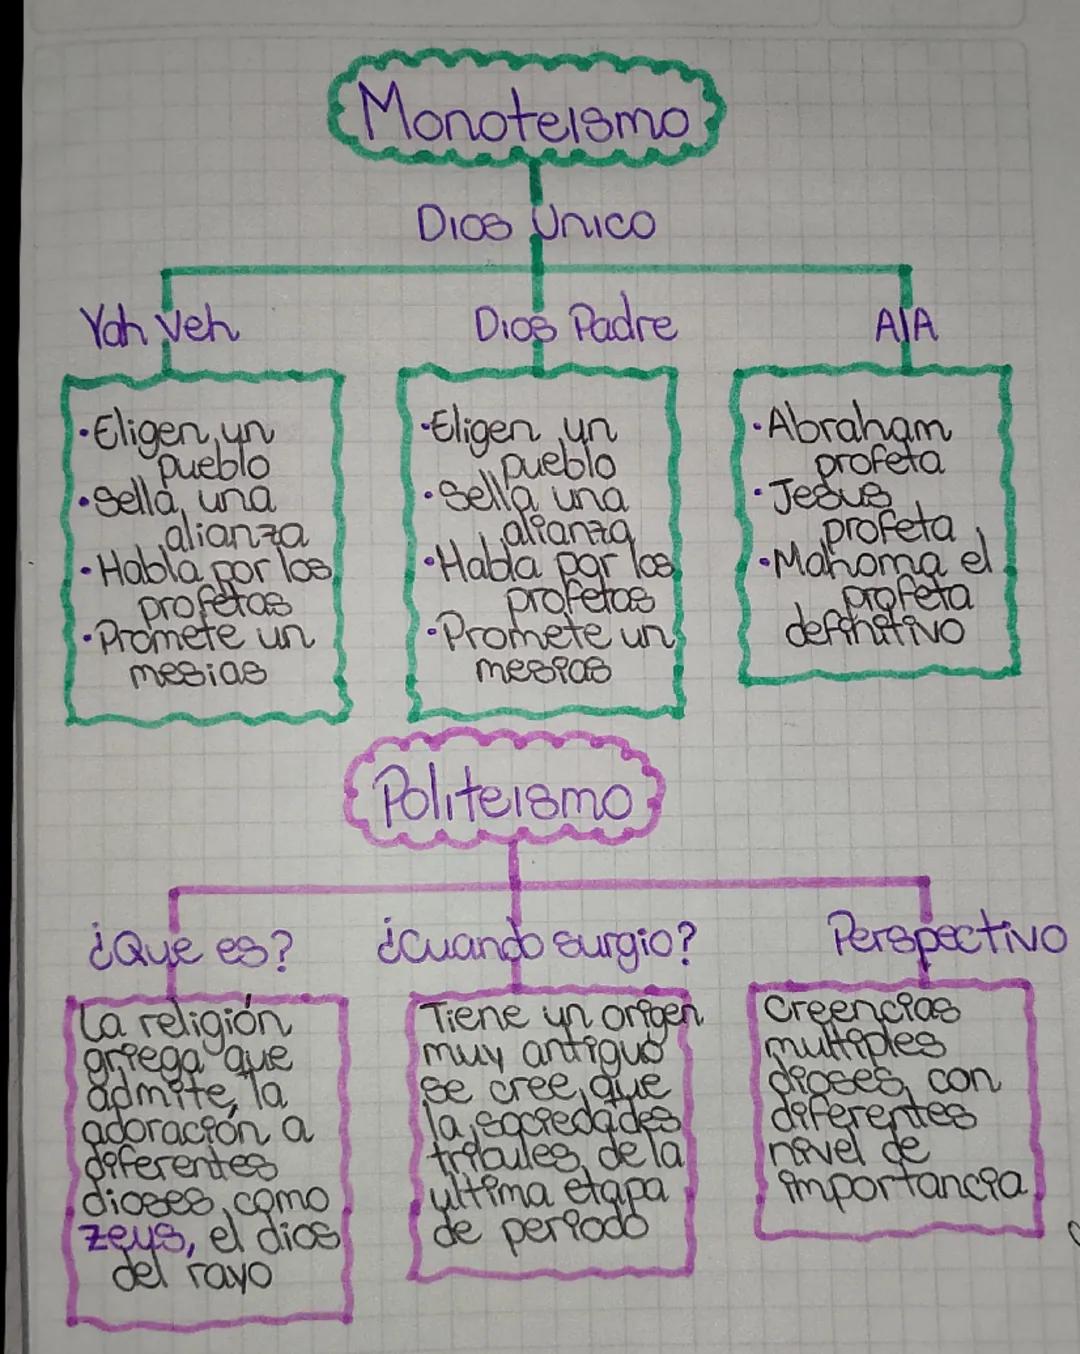 Monoteismo
Dios Unico
Yah veh
Dios Padre
AlA
•Eligen un
pueblo
•Sella una
alianza
•Habla por los
profetas
•Promete un
mesias
•Eligen un
pueblo
•Sella una
alianza
•Habla por los
profetas
•Promete un
mesias
•Abraham
profeta
•Jesus
profeta
•Mahoma el
profeta
definitivo
Politeismo
¿Que es?
¿Cuando surgio?
Perspectivo
La religión
griega que
admite la
adoración a
diferentes
dioses como
zeus, el dios
del rayo
Tiene un origen
muy antiguo
se cree que
la sociedades
tribules de la
ultima etapa
de periodo
Creencias
multiples
dioses con
diferentes
nivel de
importancia